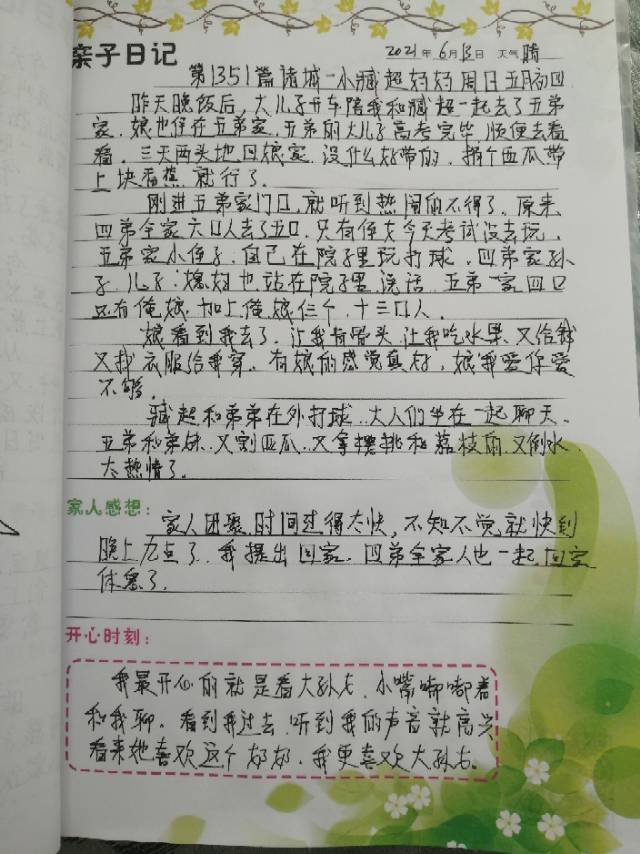 亲子日记 2021年6月13日 天气 晴
第1351篇诸城一小臧超奶奶周日五月初四
昨天晚饭后,大儿子开车陪我和臧超一起去了五弟
家.娘也住在五弟家.五弟的大儿子高考完毕 顺便去看
看.三天两头地回娘家.没什么好带的.捎个西瓜带
上块香蕉 就行了.
刚进五弟家门口,就听到热闹的不得了。原来
四弟全家六口人去了五口.只有侄女今天考试没去玩.
五弟家小侄子.自己在院子里玩打球.四弟家孙
子.儿子.媳妇也站在院子里说话.五弟一家四口
还有俺娘.加上俺娘仨个.十三口人.
娘看到我去了.让我啃骨头.让我吃水果.又给我
又找衣服给我穿..有娘的感觉真好,娘我爱你爱
不够.
臧超和弟弟在外打球.大人们坐在一起聊天.
五弟和弟妹.又割西瓜.又拿樱桃和荔枝.又倒水
太热情了.
家人感想:
家人团聚.时间过得太快.不知不觉就快到
晚上九点了.我提出回家.四弟全家人也一起回家
休息了.
开心时刻:
我最开心的就是看大孙七.小嘴嘟嘟着
和我聊.看到我过去.听到我的声音就高兴
看来她喜欢这个奶奶.我更喜欢大孙七.